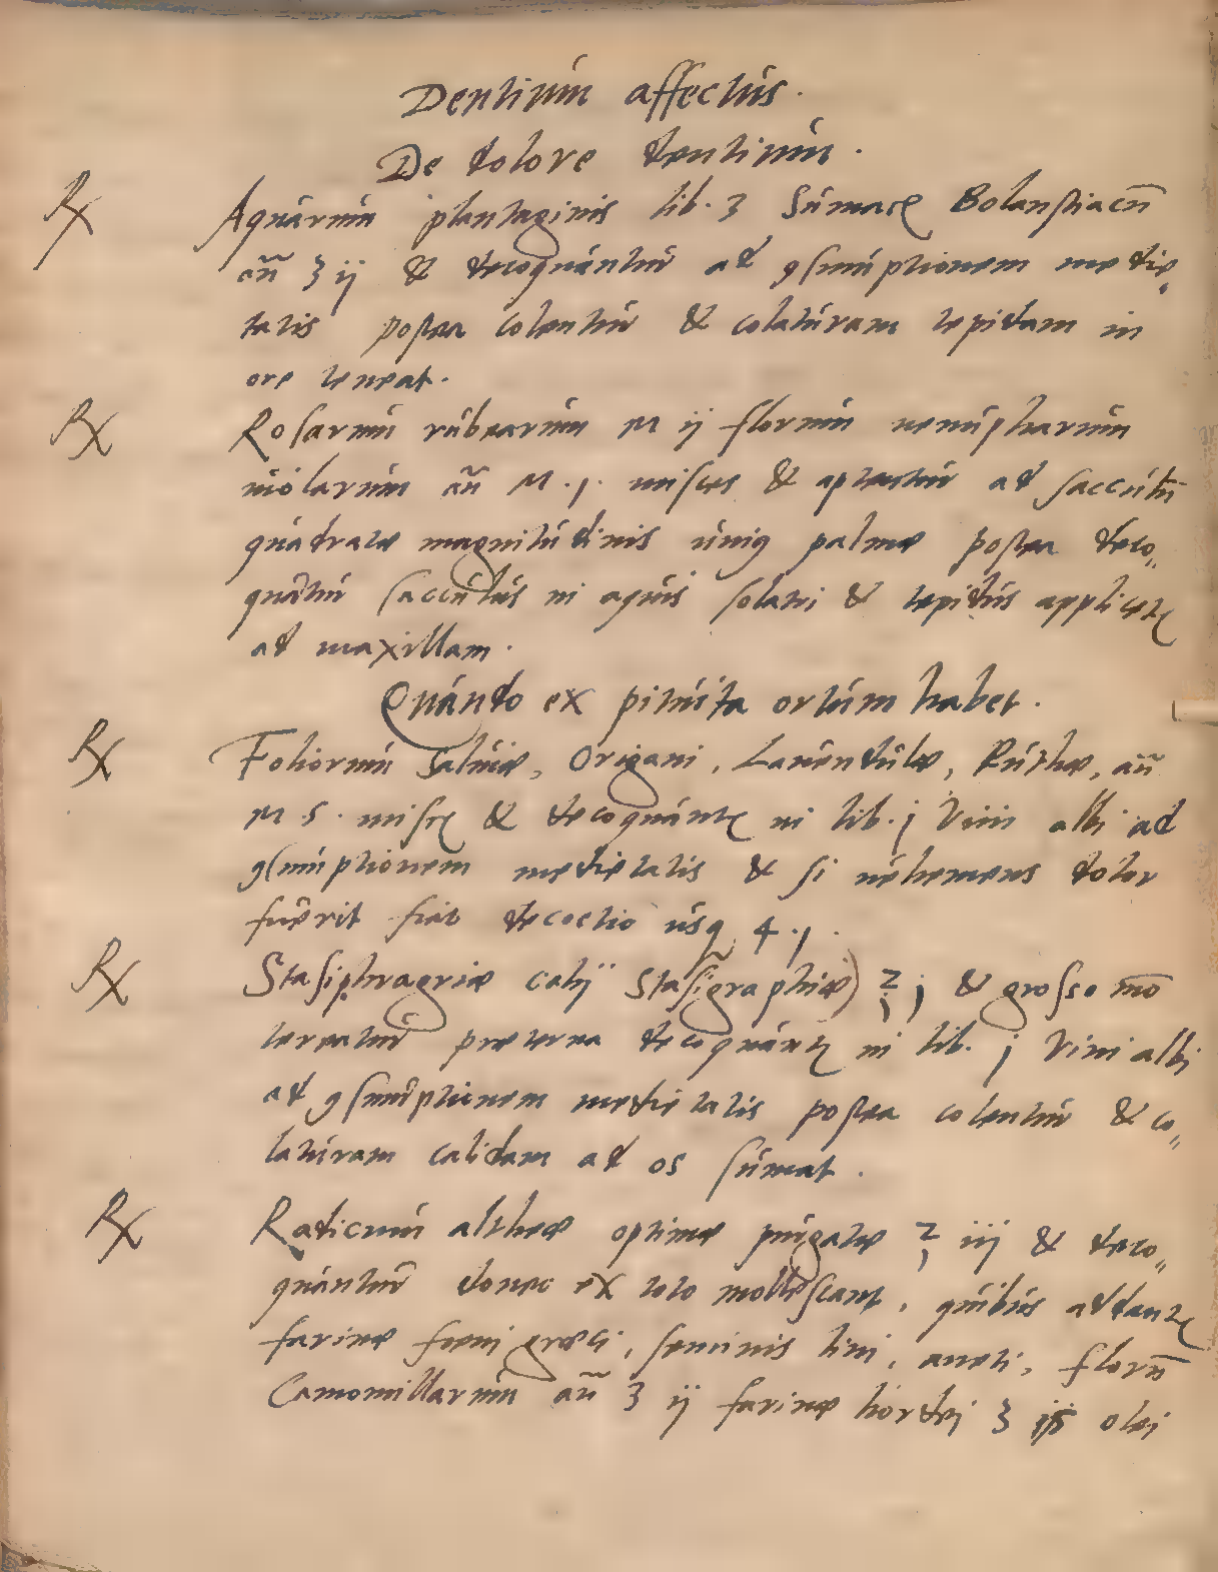 Dentium affectus.
De dolore dentium.
℞ Aquarum plantaginis lib. 3 Sumac Bolaustiacū
añ ʒ ij & decoquantur ad ꝯsumptionem medie„
tatis postea colentur & colaturam tepidam in
ore teneat.
℞ Rosarum rubearum M ij florum nenupharum
violarum añ M. j. misces & aptentur ad sacculū
quadratæ magnitudinis uniꝯ palmæ postea deco„
quātur sacculus in aquis solatri & tepidus applicetꝛ
ad maxillam.
Quando ex pituita ortum habet.
℞ Foliorum Salviæ, Origani, Lauendulæ, Ruthæ, añ
M. s. miscꝛ & decoquantꝛ in lib. j Vini albi ad
ꝯsumptionem medietatis & si uehemens dolor
fuerit fiat decoctio usqꝫ 4. j.
℞ Stasiphragriæ calij Stasigraphiæ) ℥ j & grosso mō
tereatur præterea decoquantꝛ in lib. j Vini albi
ad ꝯsumptionem medietatis postea colentur & co„
laturam calidam ad os sumat.
℞ Radicum altheæ optimæ purgatæ ℥ iij & deco„
quantur donec ex toto mollescant, quibus addantꝛ
farinæ foeni græci, seminis lini, aneti, florū
Camomillarum añ ʒ ij farinæ hordei ʒ olei